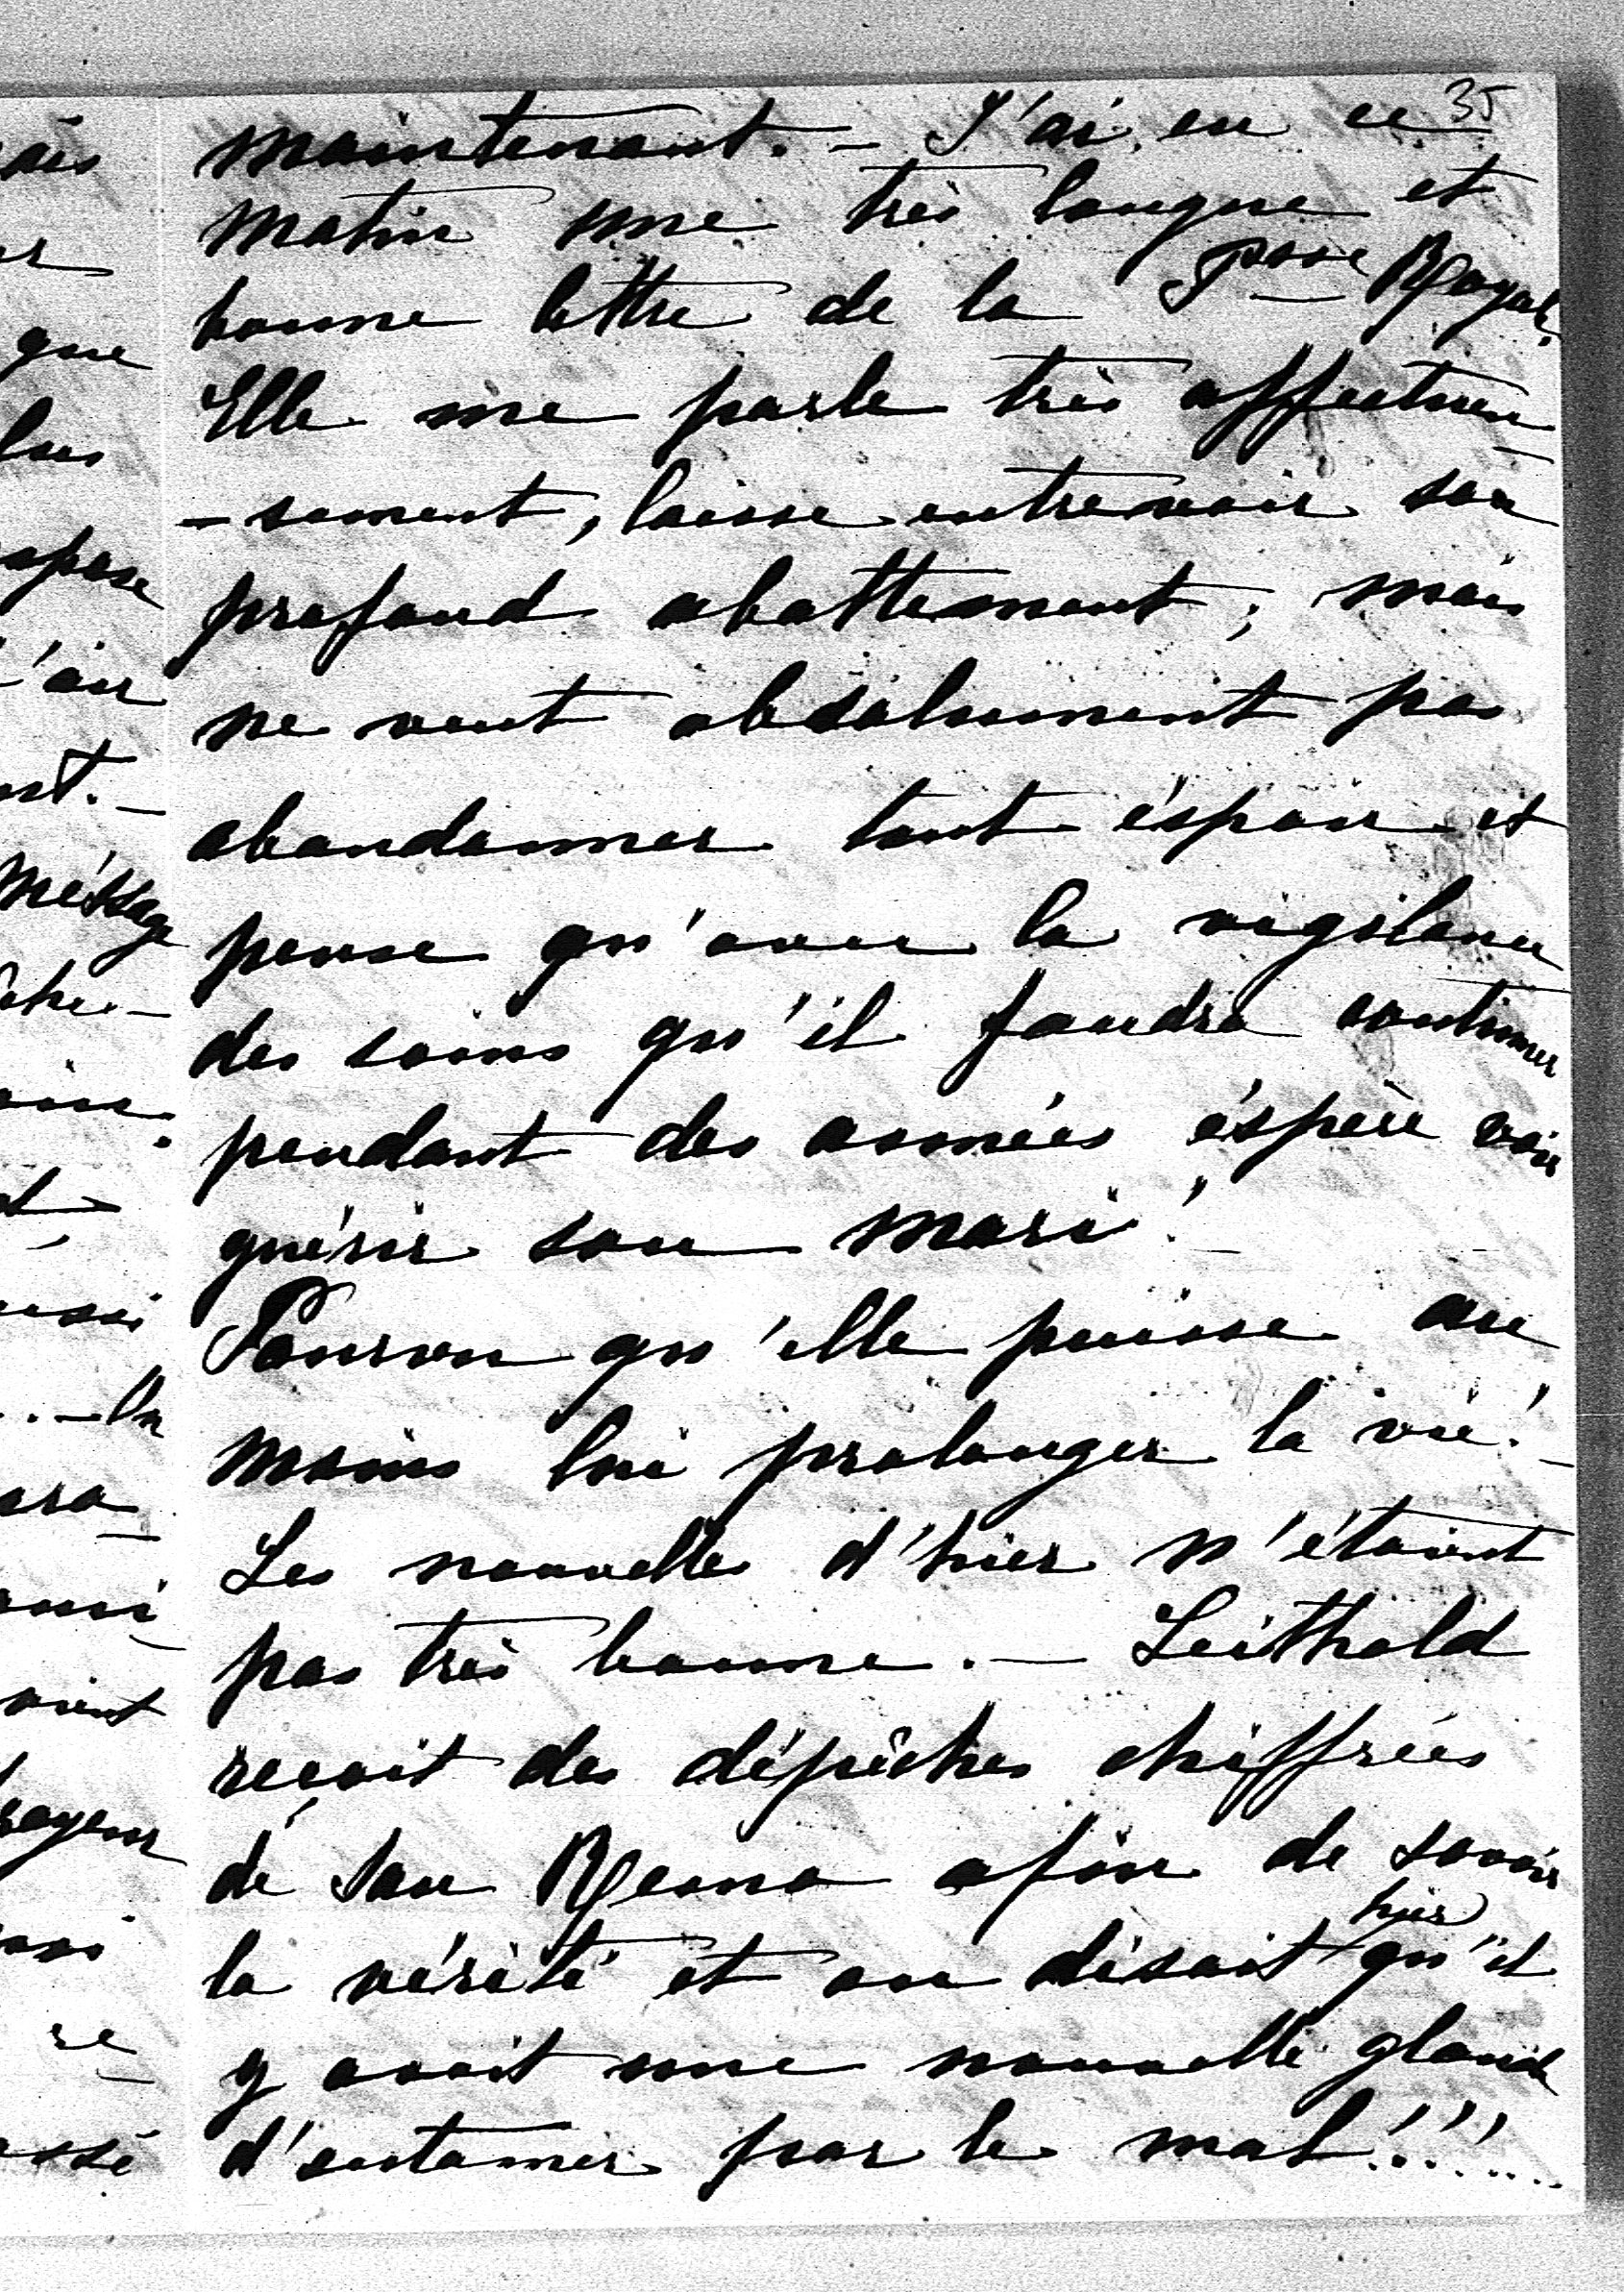 35
maintenant. — J'ai eu ce
matin une très longue et
bonne lettre de la Psse Royal.
Elle me parle très affectueu
-sement, laisse entrevoir son
profond abattement; mais
ne veut absolument pas
abandonner tout éspoir et
pense qu'avec la vigilance
des soins qu'il faudra continuer
pendant des années éspère voir
guérir son mari! —
Pourvu qu'elle puisse au
moins lui prolonger la vie! —
Les nouvelles d'hier n'étaient
pas très bonne. — Leithold
reçoit des dépêches chiffrées
de San Remo afin de savoir
hier
la vérité et on disait qu'il
y avait une nouvelle glande
d'entamer par le mal!!!......
ais
que
spose
l'air
Méssage
. . — On
vient
ssé